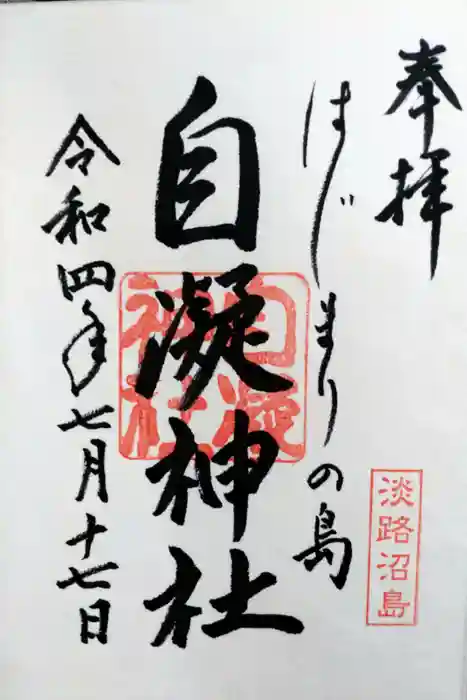 奉拝
淡路沼島
はじまりの島
自凝神社
自凝神社
令和四年七月十七日